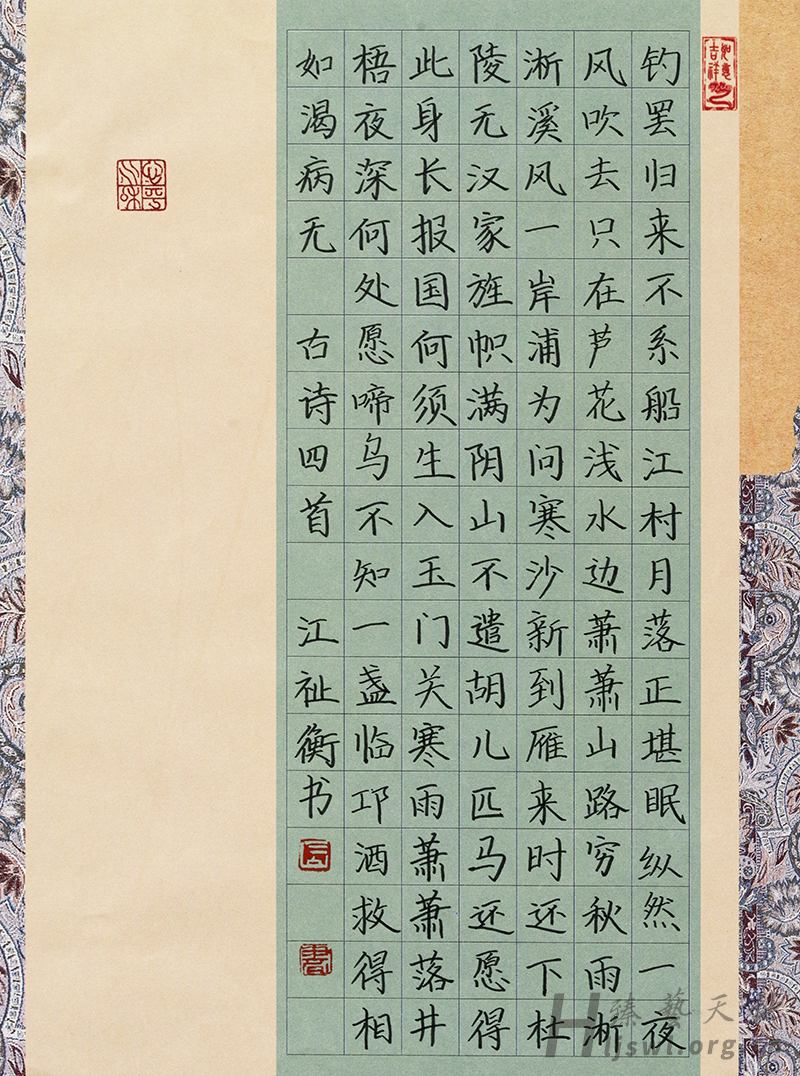 钓罢归来不系船江村月落正堪眠纵然一夜
风吹去只在芦花浅水边萧萧山路穷秋雨淅
淅溪风一岸浦为问寒沙新到雁来时还下杜
陵无汉家旌帜满阴山不遣胡儿匹马还愿得
此身长报国何须生入玉门关寒雨萧萧落井
梧夜深何处愿啼乌不知一盏临邛酒救得相
如渴病无 古诗四首 江祉衡书